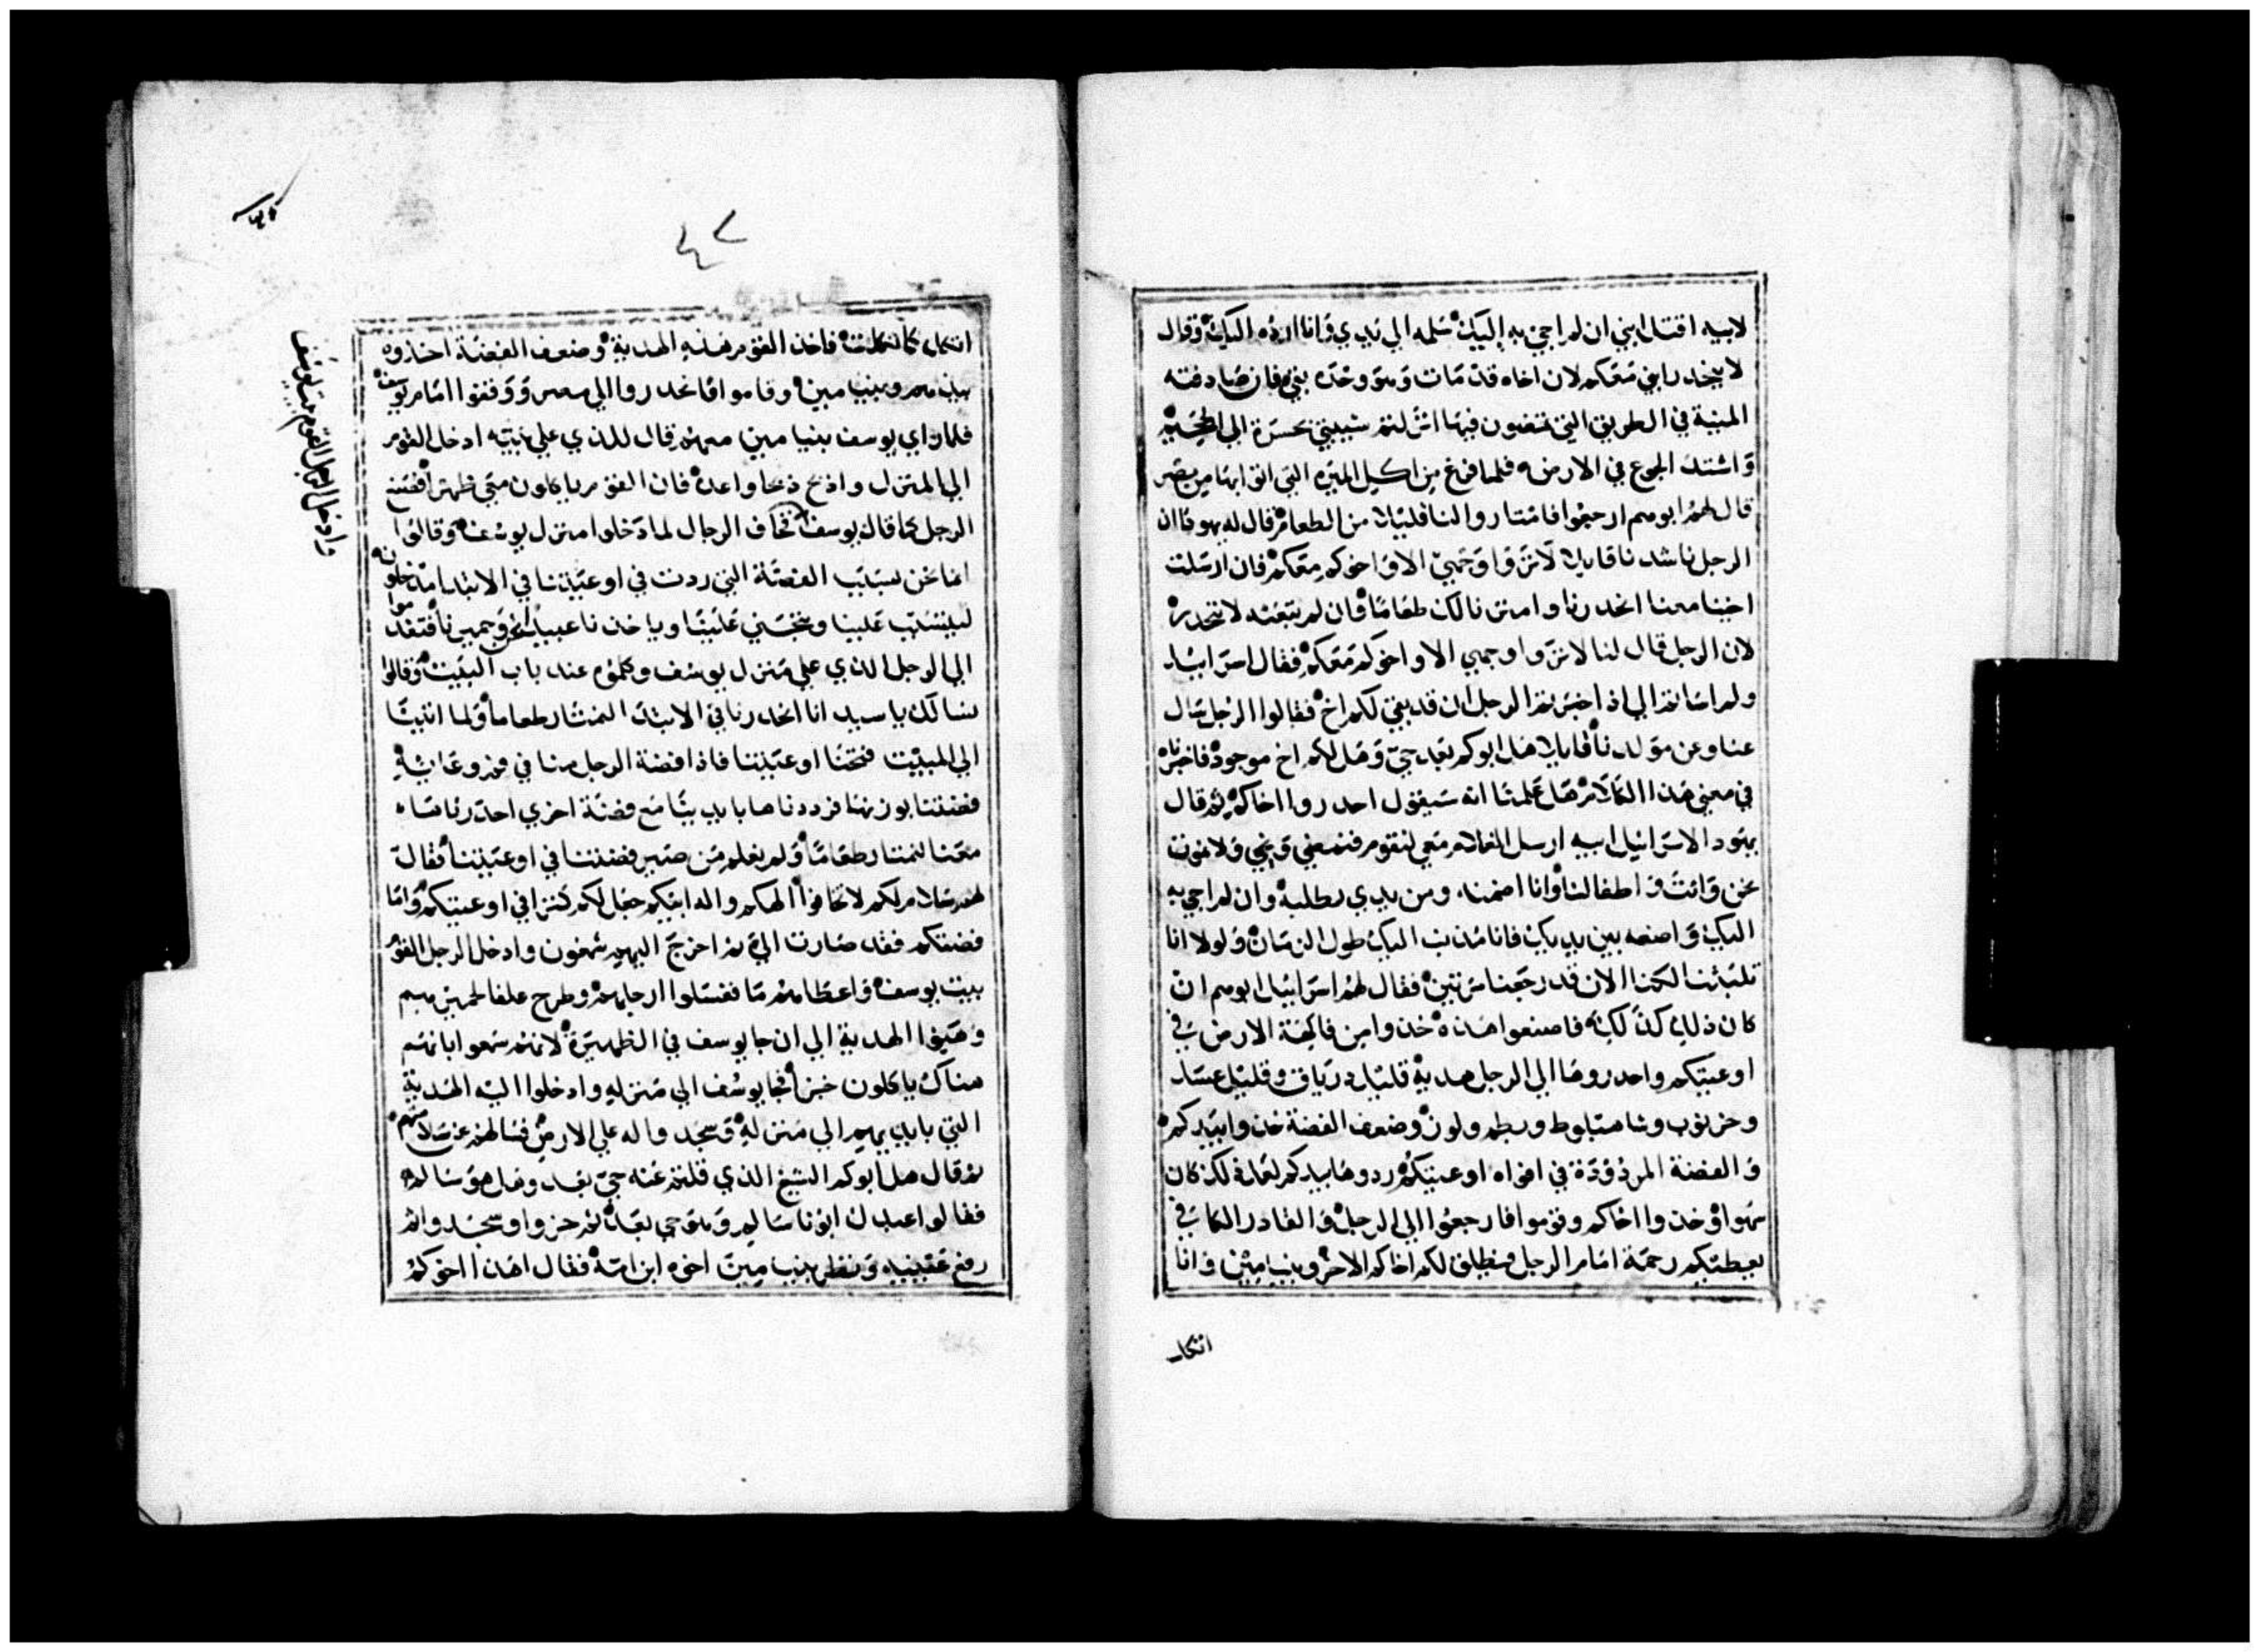 لابيه اقتل ابني ان لم اجي به اليك سلمه الي يدي وانا ارده اليك وقال
لا ينحدر ابني معكم لان اخاه قد مات وهو وحده بقي فان صادفته
المنية في الطريق التي تمضون فيها انزلتم شيبتي بحسرة الي الجحيم
واشتد الجوع في الارض فلما فرغ من اكيل الميره التي اتوا بها من مصر
قال لهم ابوهم ارجعوا فامتاروا لنا قليلا من الطعام قال له يهوذا ان
الرجل ناشدنا قايلا لا تروا وجهي الا واخوكم معكم فان ارسلت
اخينا معنا انحدرنا وامترنا لك طعاما وان لم تبعته لا ننحدر
لان الرجل قال لنا لا تروا وجهي الا واخوكم معكم فقال اسراييل
ولم اساتم الي اذ اخبرتم الرجل ان قد بقي لكم اخ فقالوا الرجل سال
عنا وعن مولدنا قايلا هل ابوكم بعد حي وهل لكم اخ موجود فاخبرناه
في معني هذا الكلام هل علمنا انه سيقول احدروا اخاكم ثم قال
يهودا لاسراييل ابيه ارسل الغلام معي لنقوم فنمضي ونحي ولا نموت
نحن وانت واطفالنا وانا اضمنه ومن يدي تطلبه وان لم اجي به
اليك واضعه بين يديك فانا مذنب اليك طول الزمان ولولا انا
تلبثنا لكنا الان قد رجعنا مرتين فقال لهم اسراييل ابوهم ان
كان ذلك كذلك فاصنعوا هذه خذوا من فاكهة الارض في
اوعيتكم واحدروها الي الرجل هدية قليل درياق وقليل عسل
وخرنوب وشاهبلوط وبطم ولوز وضعف الفضة خذوا بيديكم
والفضة المردودة في افواه اوعيتكم ردوها بيديكم لعله لكن كان
سهوا وخذوا اخاكم وقوموا فارجعوا الي الرجل والقادر الكافي
يعطيكم رحمة امام الرجل ويطلق لكم اخاكم الاخر وبنيامين وانا
اثكل
٤٢
اثكل كما ثكلت فاخذ القوم هذه الهدية وضعف الفضة اخذوه
بيديهم وبنيامين وقاموا فانحدروا الي مصر ووقفوا امام يوسف
فلما راي يوسف بنيامين معهم قال للذي علي بيته ادخل القوم
الي المنزل واذبح ذبحا واعد فان القوم ياكلون معي ظهرا فصنع
الرجل كما قال يوسف فخاف الرجال لما دخلوا منزل يوسف وقالوا
انما نحن بسبب الفضة التي ردت في اوعيتنا في الابتدا مدخلونه
ليتسبب علينا ويتجني علينا وياخذنا عبيدا له وحميرنا فتقدموا
الي الرجل الذي علي منزل يوسف وكلموه عند باب البيت وقالوا
نسالك يا سيد انا انحدرنا في الابتدا لنمتار طعاما ولما اتينا
الي المبيت فتحنا اوعيتنا فاذا فضة الرجل منا في فم وعايه
فضتنا بوزنها فرددناها بايدينا مع فضة اخري احدرناها
معنا لنمتار طعاما ولم نعلم من صير فضتنا في اوعيتنا فقال
لهم سلام لكم لا تخافوا الهكم واله ابيكم جعل لكم كنزا في اوعيتكم واما
فضتكم فقد صارت الي ثم اخرج اليهم شمعون وادخل الرجل القوم
بيت يوسف واعطاهم ما فغسلوا ارجلهم وطرح علفا لحميرهم
وهيوا الهدية الي ان جا يوسف في الظهيرة لانهم سمعوا بانهم
هناك ياكلون خبزا فجا يوسف الي منزله وادخلوا اليه الهدية
التي بايديهم الي منزله وسجدوا له علي الارض فسالهم عن سلامتهم
ثم قال هل ابوكم الشيخ الذي قلتم عنه حي بعد وهل هو سالم
فقالوا عبدك ابونا سالم وهو حي بعد ثم خروا وسجدوا ثم
رفع عينيه ونظر بنيامين اخوه ابن امه فقال اهذا اخوكم
وادخل الرجل القوم بيت يوسف